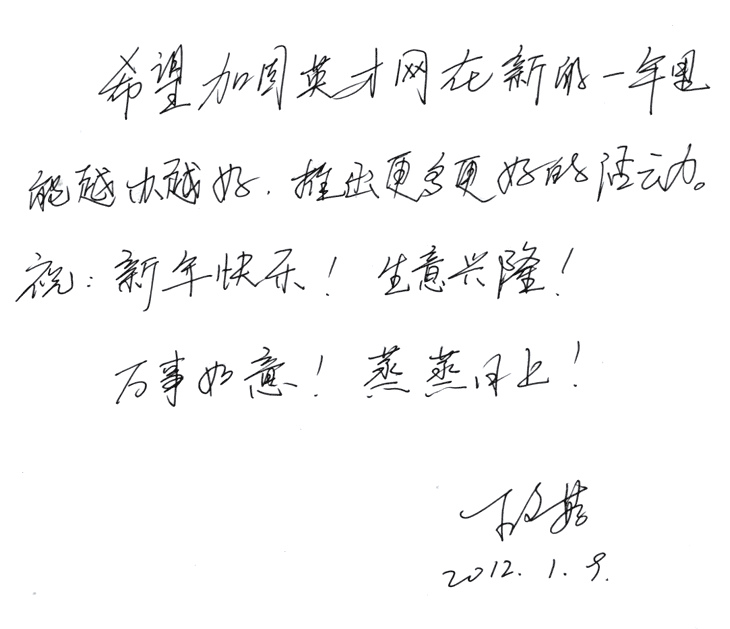 希望加国英才网在新的一年里
能越办越好,推出更多更好的活动。
祝:新年快乐!生意兴隆!
万事如意!蒸蒸日上!
2012.1.9.